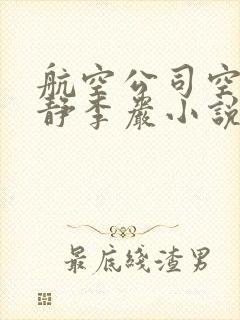 航空公司空
静李嚴小說
最底綫渣男